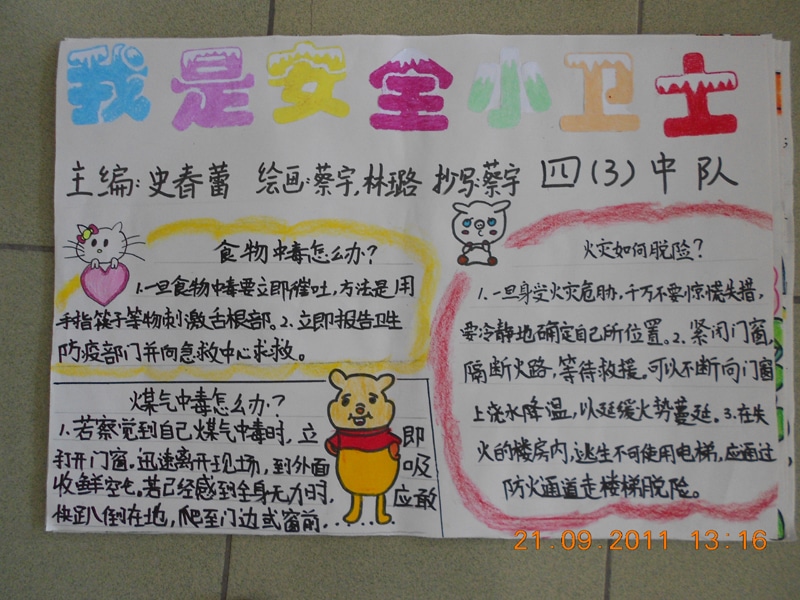 我是安全小卫士
主编:史春蕾 绘画:蔡宇,林璐 抄写:蔡宇 四(3)中队
食物中毒怎么办?
1.一旦食物中毒要立即催吐,方法是用
手指筷子等物刺激舌根部。2.立即报告卫生
防疫部门并向急救中心求救。
煤气中毒怎么办?
1.若察觉到自己煤气中毒时,立即
打开门窗。迅速离开现场,到外面吸
收鲜空气。若已经感到全身无力时,应敢
快趴倒在地,爬至门边或窗前......
火灾如何脱险?
1.一旦身受火灾危胁,千万不要惊慌失措,
要冷静地确定自己所位置。2.紧闭门窗,
隔断火路,等待救援。可以不断向门窗
上浇水降温,以延缓火势蔓延。3.在失
火的楼房内,逃生不可使用电梯,应通过
防火通道走楼梯脱险。
21.09.2011 13:16